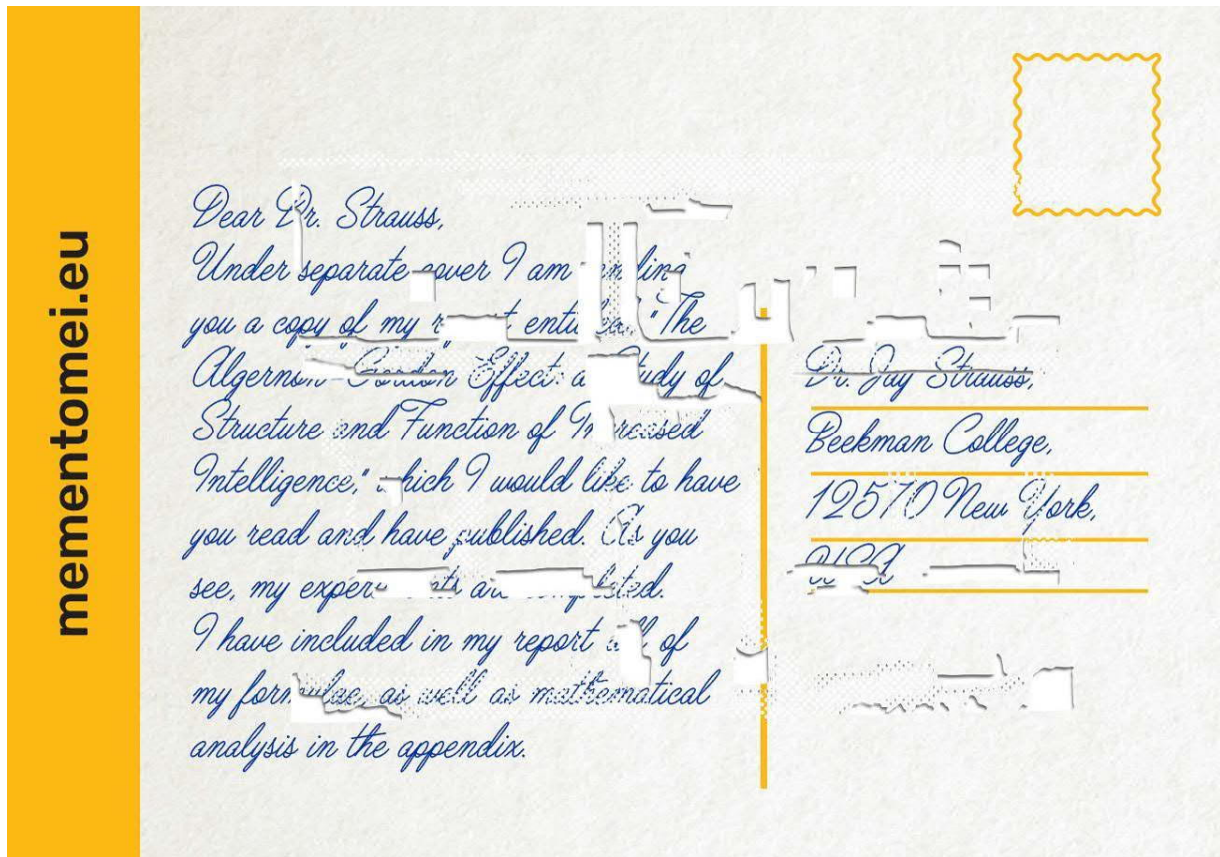 mementomei.eu
Dear Dr. Strauss,
Under separate cover I am sending
you a copy of my report entitled "The
Algernon-Gordon Effect: a Study of
Structure and Function of Increased
Intelligence," which I would like to have
you read and have published. As you
see, my experiments are completed.
I have included in my report all of
my formulae, as well as mathematical
analysis in the appendix.
Dr. Jay Strauss,
Beekman College,
12570 New York,
USA